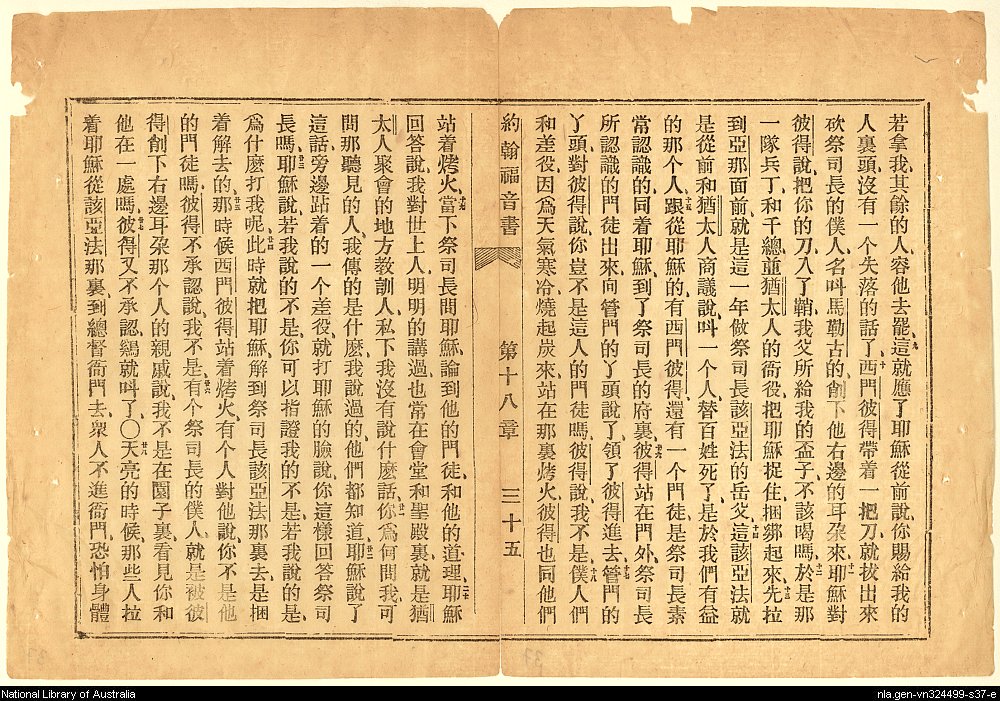 若拿我其餘的人容他去罷九這就應了耶穌從前說你賜給我的
人裏頭沒有一个失落的話了十西門彼得帶着一把刀就拔出來
砍祭司長的僕人名叫馬勒古的削下他右邊的耳朶來十一耶穌對
彼得說把你的刀入了鞘我父所給我的盃子不該喝嗎十二於是那
一隊兵丁和千總並猶太人的衙役把耶穌捉住捆綁起來十三先拉
到亞那面前就是這一年做祭司長該亞法的岳父十四這該亞法就
是從前和猶太人商議說呌一个人替百姓死了是於我們有益
的那个人十五跟從耶穌的有西門彼得還有一个門徒是祭司長素
常認識的同着耶穌到了祭司長的府裏十六彼得站在門外祭司長
所認識的門徒出來向管門的丫頭說了領了彼得進去十七管門的
丫頭對彼得說你豈不是這人的門徒嗎彼得說我不是十八僕人們
和差役因爲天氣寒冷燒起炭來站在那裏烤火彼得也同他們
約翰福音書 第十八章 三十五
站着烤火十九當下祭司長問耶穌論到他的門徒和他的道理二十耶穌
回答說我對世上人明明的講過也常在會堂和聖殿裏就是猶
太人聚會的地方敎訓人私下我沒有說什麽話廿一你爲何問我可
問那聽見的人我傳的是什麽我說過的他們都知道廿二耶穌說了
這話旁邊跕着的一个差役就打耶穌的臉說你這樣回答祭司
長嗎廿三耶穌說若我說的不是你可以指證我的不是若我說的是
爲什麽打我呢廿四此時就把耶穌解到祭司長該亞法那裏去是捆
着解去的廿五那時候西門彼得站着烤火有个人對他說你不是他
的門徒嗎彼得不承認說我不是廿六有个祭司長的僕人就是被彼
得削下右邊耳朶那个人的親戚說我不是在園子裏看見你和
他在一處嗎廿七彼得又不承認鷄就呌了〇廿八天亮的時候那些人拉
着耶穌從該亞法那裏到總督衙門去衆人不進衙門恐怕身體
National Library of Australia
nla.gen-vn324499-s37-e